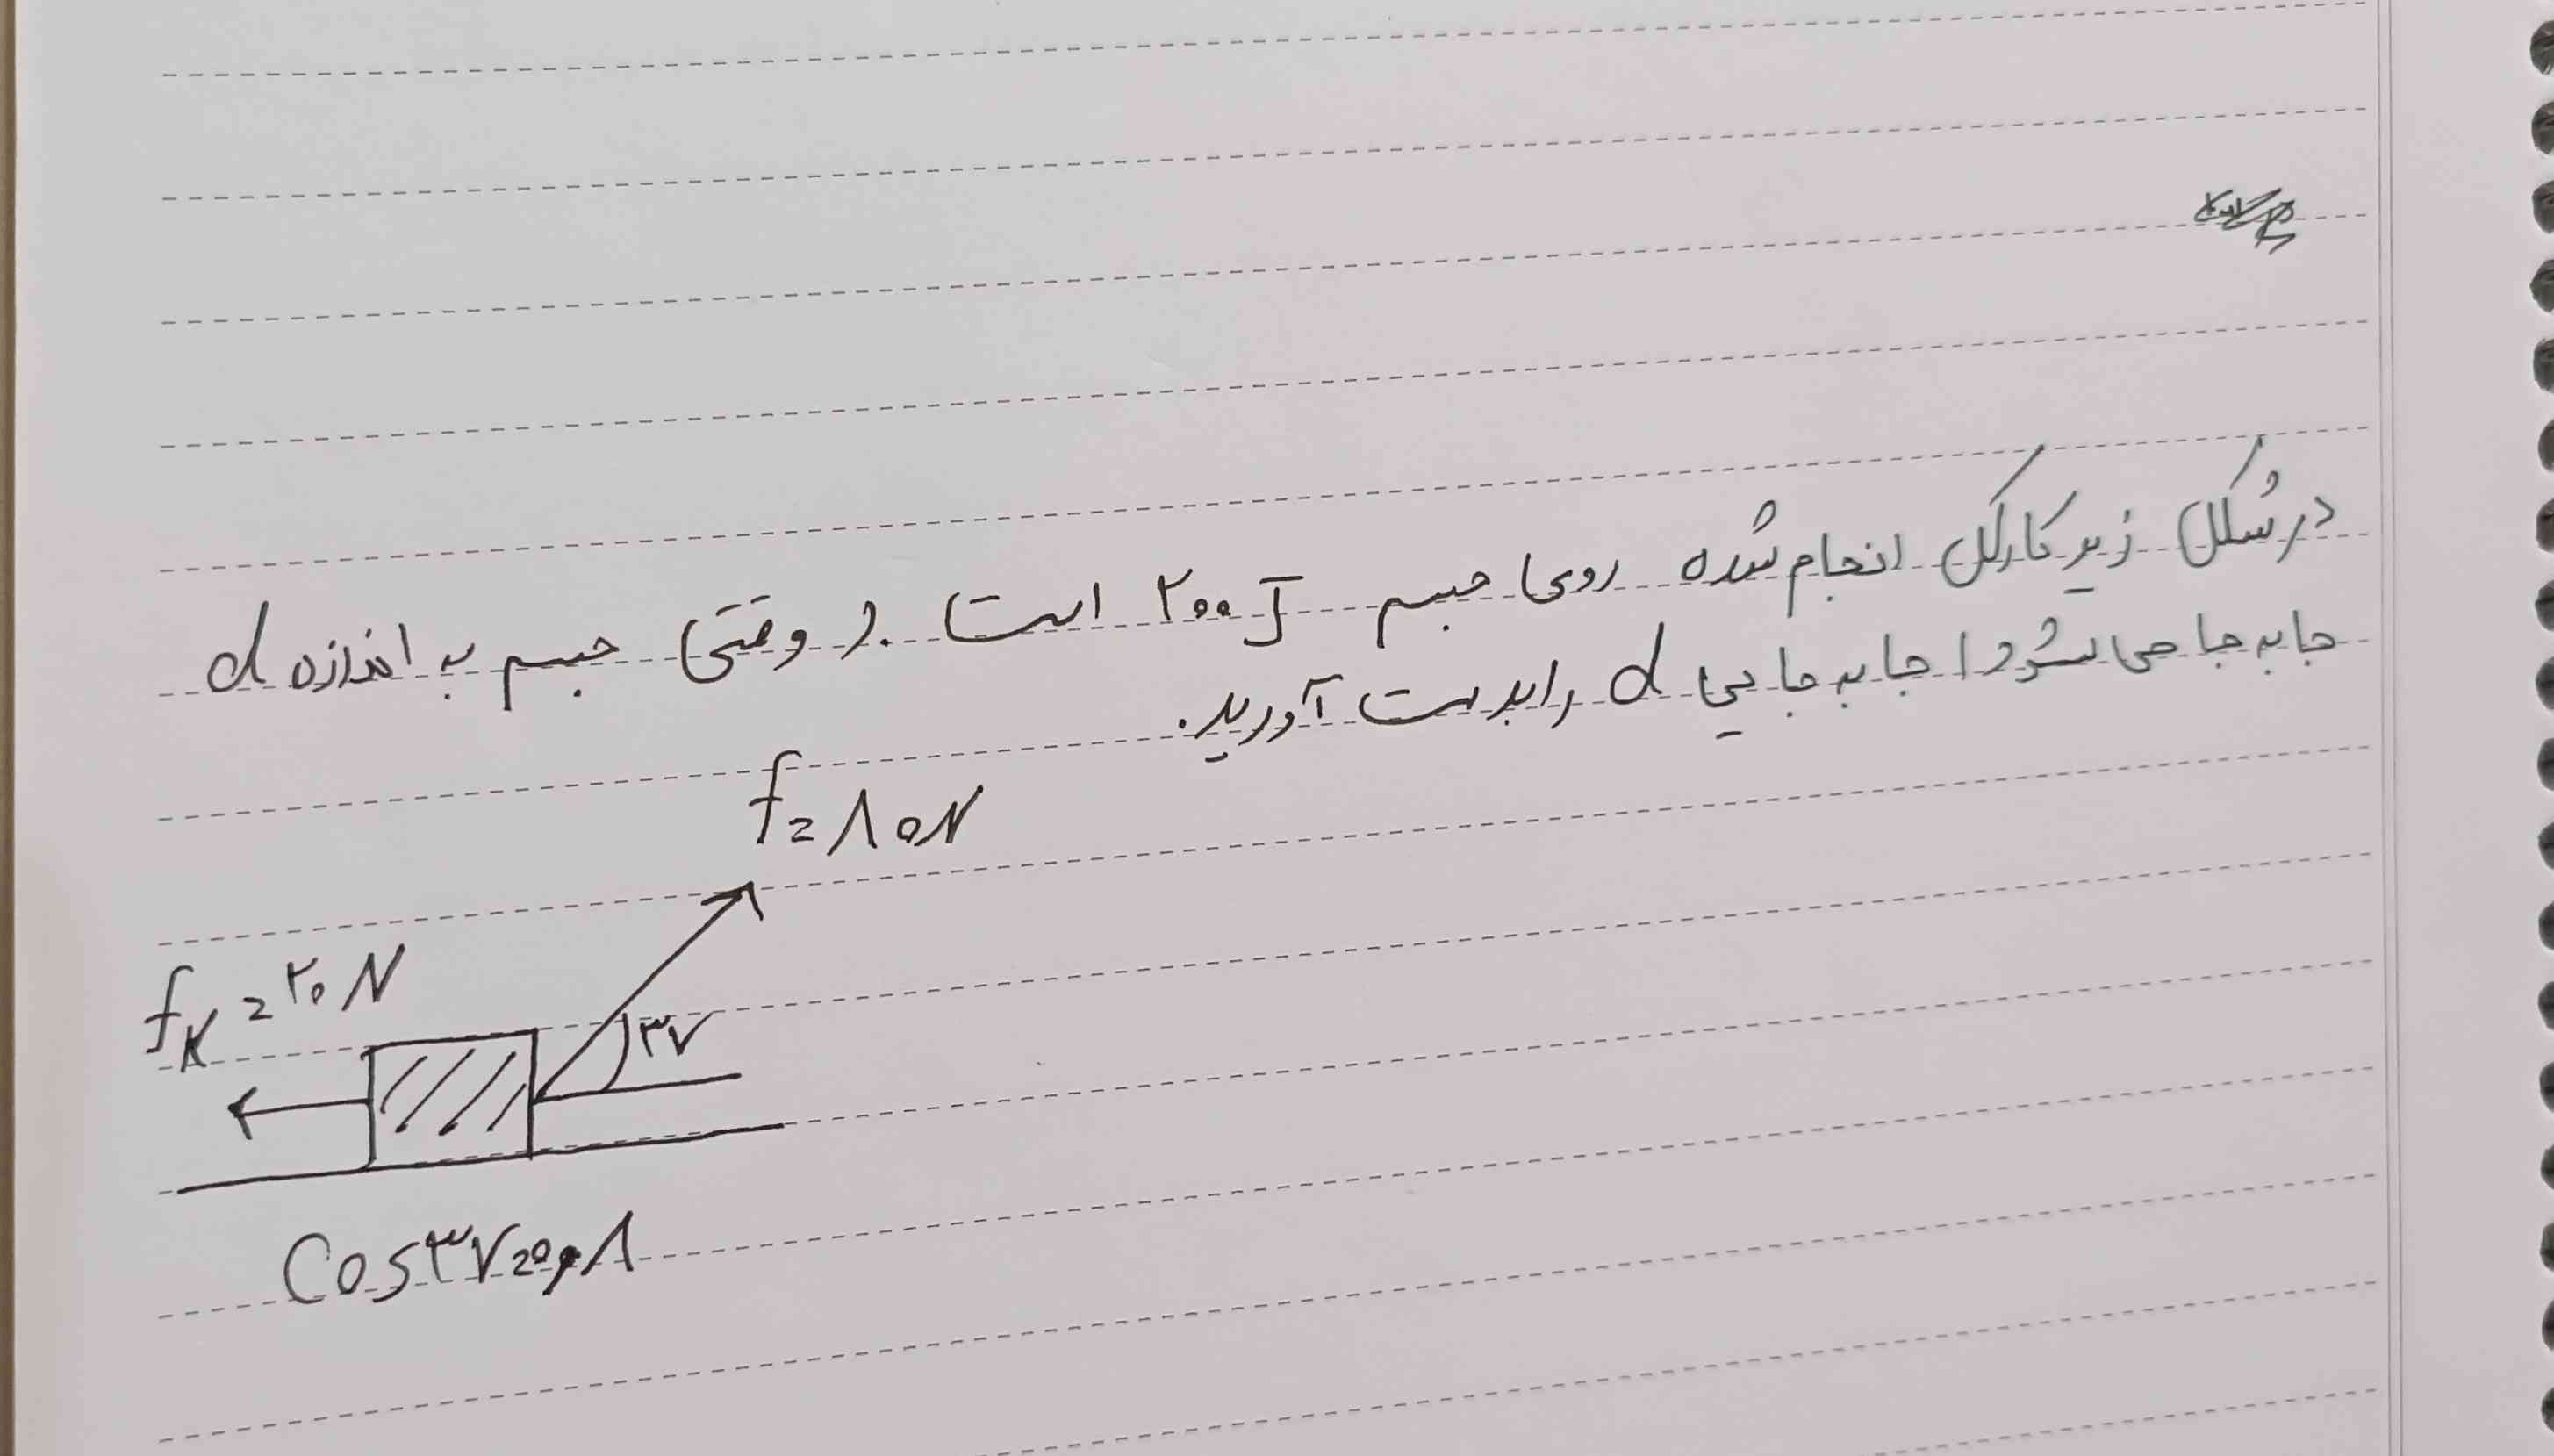 در شکل زیر کار کل انجام شده روی جسم ۲۰۰ J است. (وقتی جسم به اندازه d
جا به جا می شود) جا به جایی d را بدست آورید.
f = ۸۰N
fK = ۲۰ N
۳۷
Cos۳۷=۰,۸